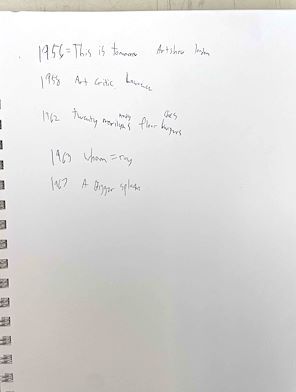 1956 = This is tomorrow Artshow
1958 Art Critic
1962 twenty marilyns floor burgers
1963 Whaam = roy
1967 A Bigger splash